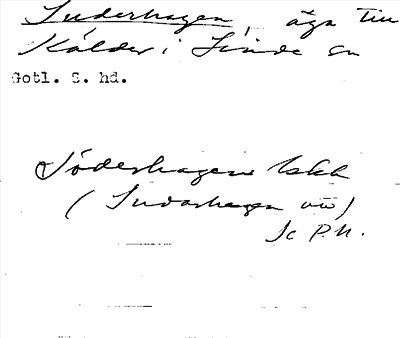 Suderhagen, äga till
Kälder i Linde sn
Gotl. S. hd.
Söderhagen Iskk
(Sudarhagen uu)
Jc P.N.